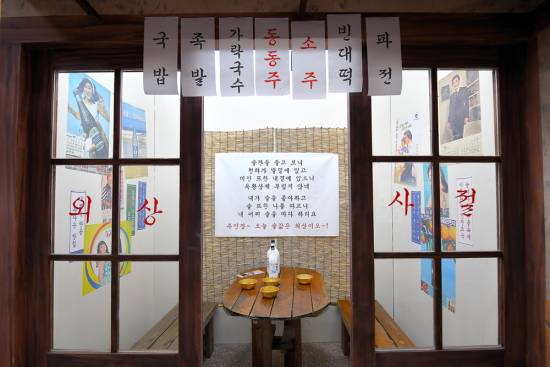 국밥
족발
가락국수
동동주
소주
빈대떡
파전
외상
사절
술잔을 들고 보니
천하가 발밑에 있고
미인 또한 내곁에 있으니
옥황상제 부럽지 않네
내가 술을 좋아하고
술 또한 나를 따르니
내 어찌 술을 마다 하리요
주인장~ 오늘 술값은 외상이오~!